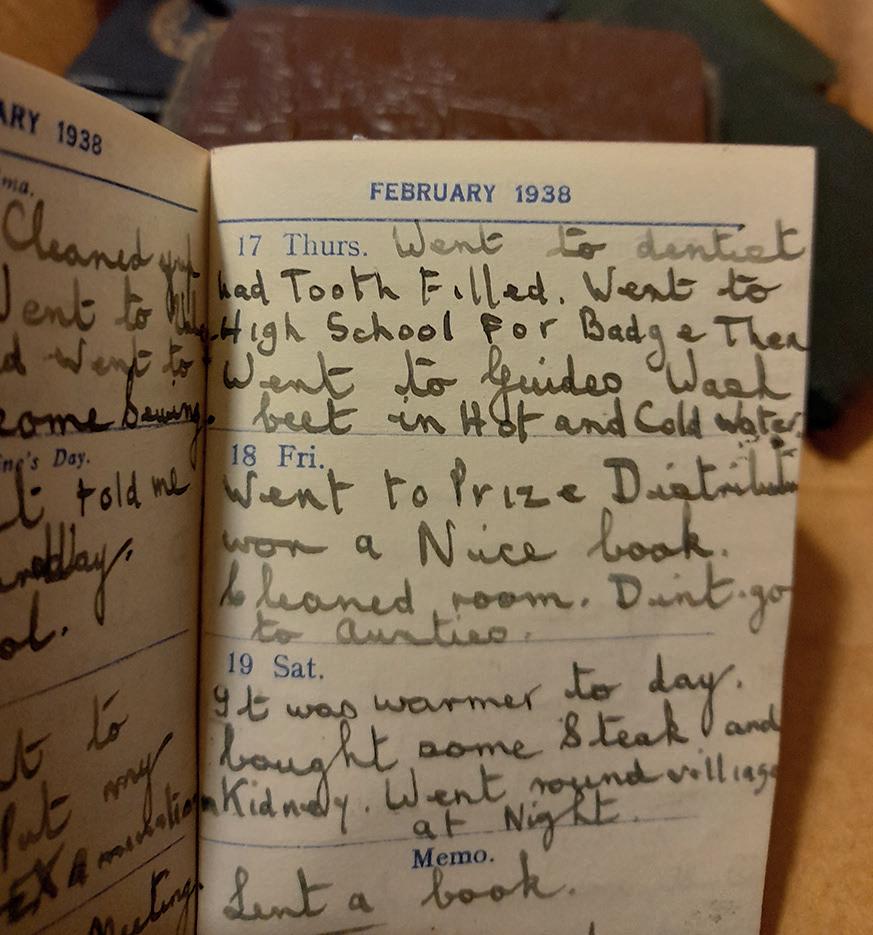 ARY 1938
Cleaned
Went to
Went to
some Sewing.
ne's Day.
told me
day.
ol.
to
Put my
EXAmination
Meeting.
FEBRUARY 1938
17 Thurs. Went to dentist
had Tooth Filled. Went to
High School For Badge Then
Went to Guides Wash
beet in Hot and Cold water.
18 Fri.
Went to Prize Distribution
won a Nice book.
Cleaned room. Dint go
to Aunties.
19 Sat.
It was warmer to day.
bought some Steak and
Kidney. Went round village
at Night.
Memo.
Lent a book.